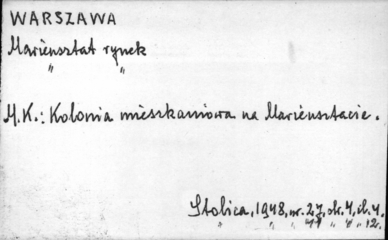 WARSZAWA
Mariensztat rynek
" "
M.K.: Kolonia mieszkaniowa na Mariensztacie.
Stolica, 1948, nr. 27, str. 4, il. 4.
" " " 49 " " " 12.